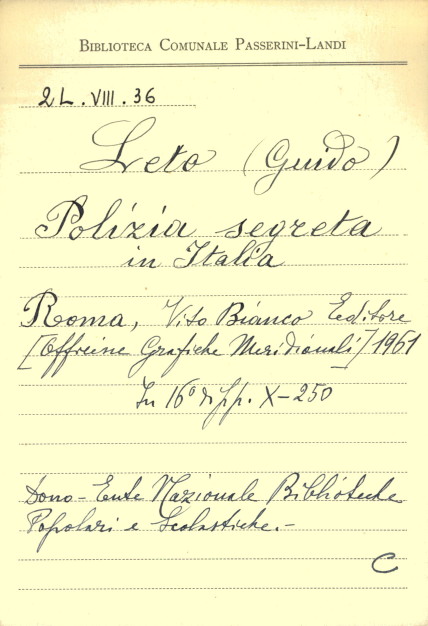 BIBLIOTECA COMUNALE PASSERINI-LANDI
2L.VIII.36
Leto (Guido)
Polizia segreta
in Italia
Roma, Vito Bianco Editore
[Officine Grafiche Meridionali] 1961
In 16° di pp. X-250
Dono - Ente Nazionale Biblioteche
Popolari e Scolastiche.-
C